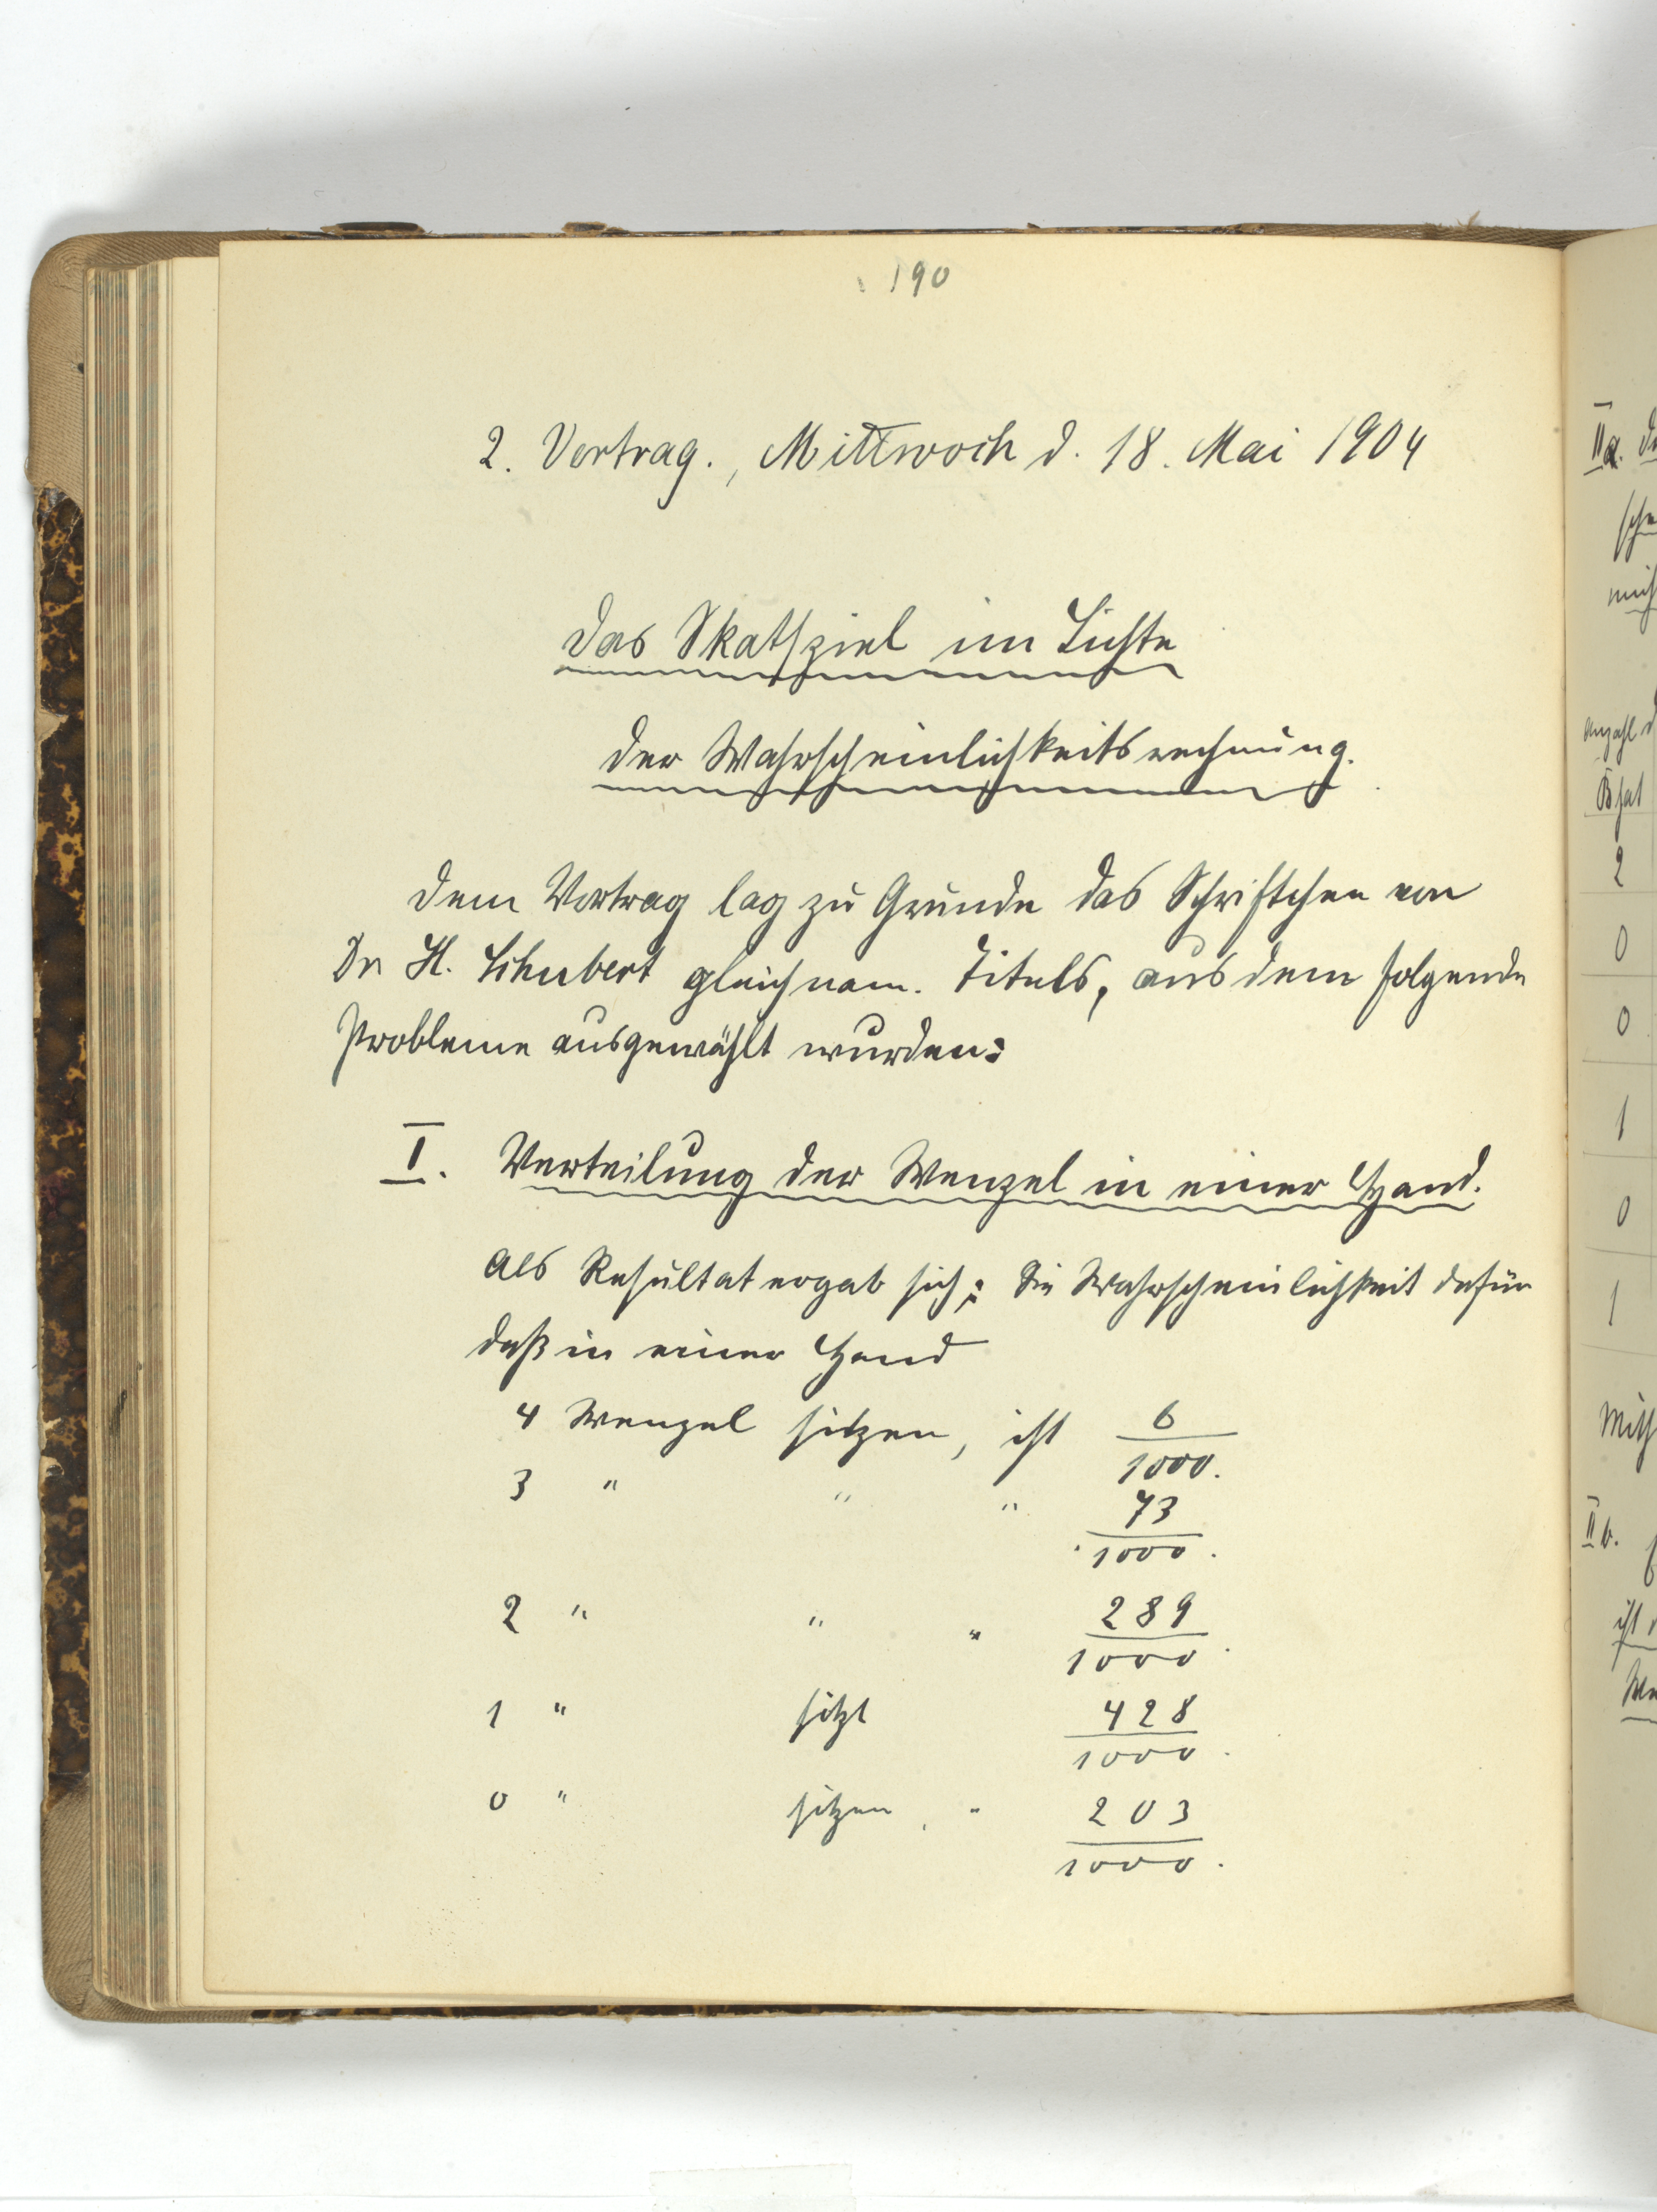 190
2. Vortrag., Mittwoch d. 18. Mai 1904
Das Skatspiel im Lichte
der Wahrscheinlichkeitsrechnung.
Dem Vortrag lag zu Grunde das Schriftchen von
Dr H. Schubert gleichnam. Titels, aus dem folgende
Probleme ausgewählt wurden:
I. Verteilung der Wenzel in einer Hand.
Als Resultat ergab sich: Die Wahrscheinlichkeit dafür
daß in einer Hand
4 Wenzel sitzen, ist 6/1000.
3 " " " 73/1000.
2 " " " 289/1000.
1 " sitzt 428/1000.
0 " sitzen, " 203/1000.
IIa.
Anzahl d
B hat
2
0
0
1
0
1
Mith
IIb.
ist